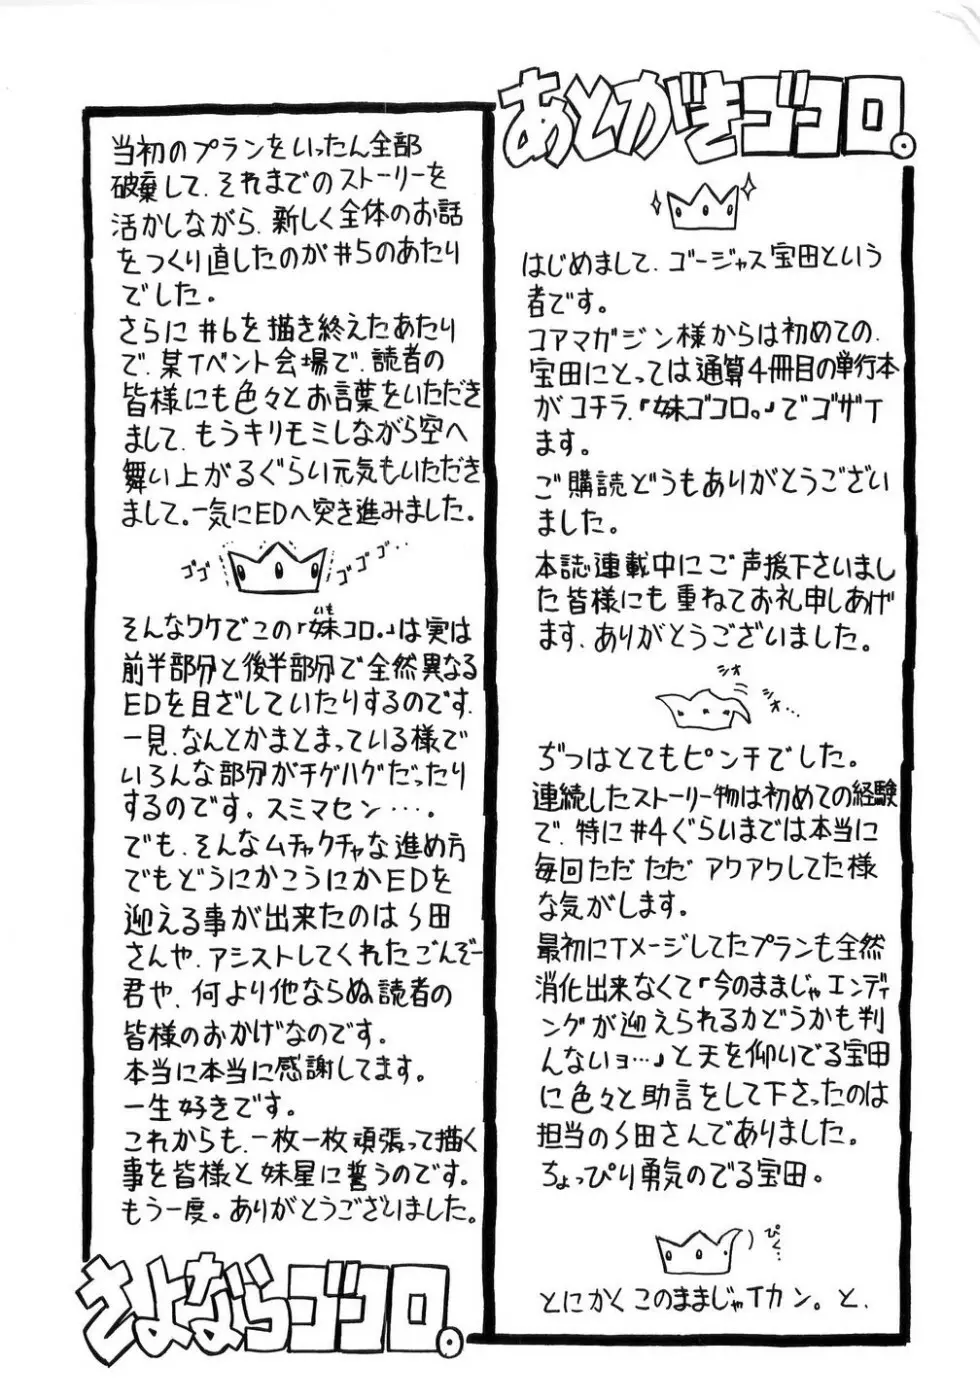 あとがきゴコロ。
はじめまして、ゴージャス宝田という
者です。
コアマガジン様からは初めての、
宝田にとっては通算4冊目の単行本
がコチラ、『妹ゴコロ。』でゴザイ
ます。
ご購読どうもありがとうござい
ました。
本誌連載中にご声援下さいまし
た皆様にも重ねてお礼申しあげ
ます、ありがとうございました。
シオ
シオ…
ぢつはとてもピンチでした。
連続したストーリー物は初めての経験
で、特に#4ぐらいまでは本当に
毎回ただただアワアワしてた様
な気がします。
最初にイメージしてたプランも全然
消化出来なくて『今のままじゃエンディ
ングが迎えられるかどうかも判
んないョ…』と天を仰いでる宝田
に色々と助言をして下さったのは
担当のS田さんでありました。
ちょっぴり勇気のでる宝田。
ぴく…
とにかくこのままじゃイカン。と、
当初のプランをいったん全部
破棄して、それまでのストーリーを
活かしながら、新しく全体のお話
をつくり直したのが#5のあたり
でした。
さらに#6を描き終えたあたり
で、某イベント会場で、読者の
皆様にも色々とお言葉をいただき
まして、もうキリモミしながら空へ
舞い上がるぐらい元気もいただき
まして。一気にEDへ突き進みました。
ゴゴゴ
ゴゴゴ…
そんなワケでこの『妹コロ。』は実は
いも
前半部分と後半部分で全然異なる
EDを目ざしていたりするのです。
一見、なんとかまとまっている様で
いろんな部分がチグハグだったり
するのです。スミマセン….
でも、そんなムチャクチャな進め方
でもどうにかこうにかEDを
迎える事が出来たのはS田
さんや、アシストしてくれたごんぞー
君や、何より他ならぬ読者の
皆様のおかげなのです。
本当に本当に感謝してます。
一生好きです。
これからも、一枚一枚頑張って描く
事を皆様と妹星に誓うのです。
もう一度。ありがとうございました。
さよならゴコロ。